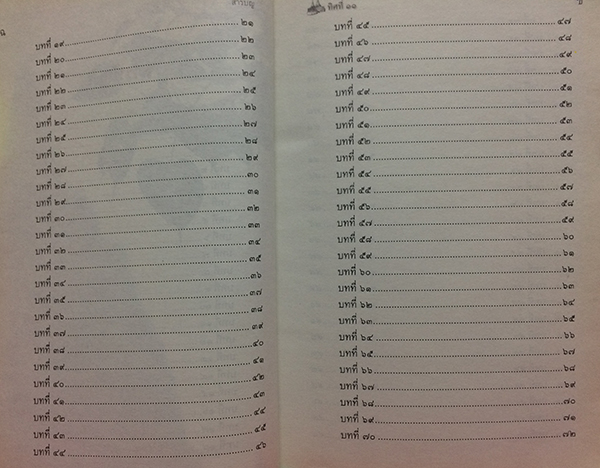 สารบัญ
บทที่ ๑๙ ๒๑
บทที่ ๒๐ ๒๒
บทที่ ๒๑ ๒๓
บทที่ ๒๒ ๒๔
บทที่ ๒๓ ๒๕
บทที่ ๒๔ ๒๖
บทที่ ๒๕ ๒๗
บทที่ ๒๖ ๒๘
บทที่ ๒๗ ๒๙
บทที่ ๒๘ ๓๐
บทที่ ๒๙ ๓๑
บทที่ ๓๐ ๓๒
บทที่ ๓๑ ๓๓
บทที่ ๓๒ ๓๔
บทที่ ๓๓ ๓๕
บทที่ ๓๔ ๓๖
บทที่ ๓๕ ๓๗
บทที่ ๓๖ ๓๘
บทที่ ๓๗ ๓๙
บทที่ ๓๘ ๔๐
บทที่ ๓๙ ๔๑
บทที่ ๔๐ ๔๒
บทที่ ๔๑ ๔๓
บทที่ ๔๒ ๔๔
บทที่ ๔๓ ๔๕
บทที่ ๔๔ ๔๖
ทิศที่ ๑๑
บทที่ ๔๕ ๔๗
บทที่ ๔๖ ๔๘
บทที่ ๔๗ ๔๙
บทที่ ๔๘ ๕๐
บทที่ ๔๙ ๕๑
บทที่ ๕๐ ๕๒
บทที่ ๕๑ ๕๓
บทที่ ๕๒ ๕๔
บทที่ ๕๓ ๕๕
บทที่ ๕๔ ๕๖
บทที่ ๕๕ ๕๗
บทที่ ๕๖ ๕๘
บทที่ ๕๗ ๕๙
บทที่ ๕๘ ๖๐
บทที่ ๕๙ ๖๑
บทที่ ๖๐ ๖๒
บทที่ ๖๑ ๖๓
บทที่ ๖๒ ๖๔
บทที่ ๖๓ ๖๕
บทที่ ๖๔ ๖๖
บทที่ ๖๕ ๖๗
บทที่ ๖๖ ๖๘
บทที่ ๖๗ ๖๙
บทที่ ๖๘ ๗๐
บทที่ ๖๙ ๗๑
บทที่ ๗๐ ๗๒